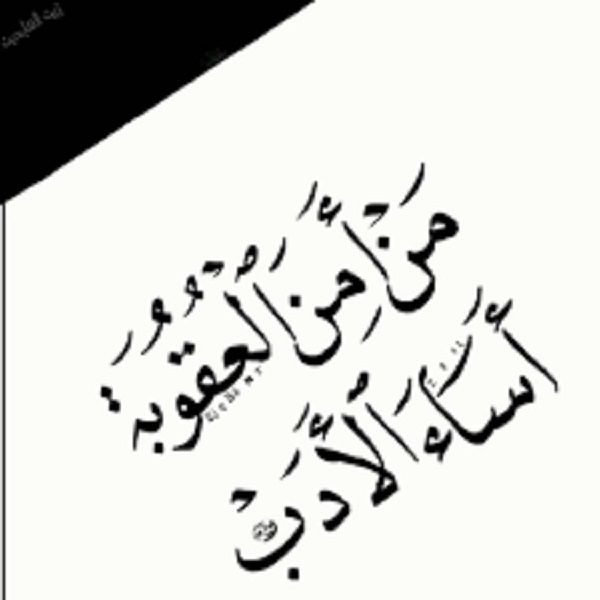 مَنْ أَمِنَ الْعُقُوبَةَ
أَسَاءَ الْأَدَبْ